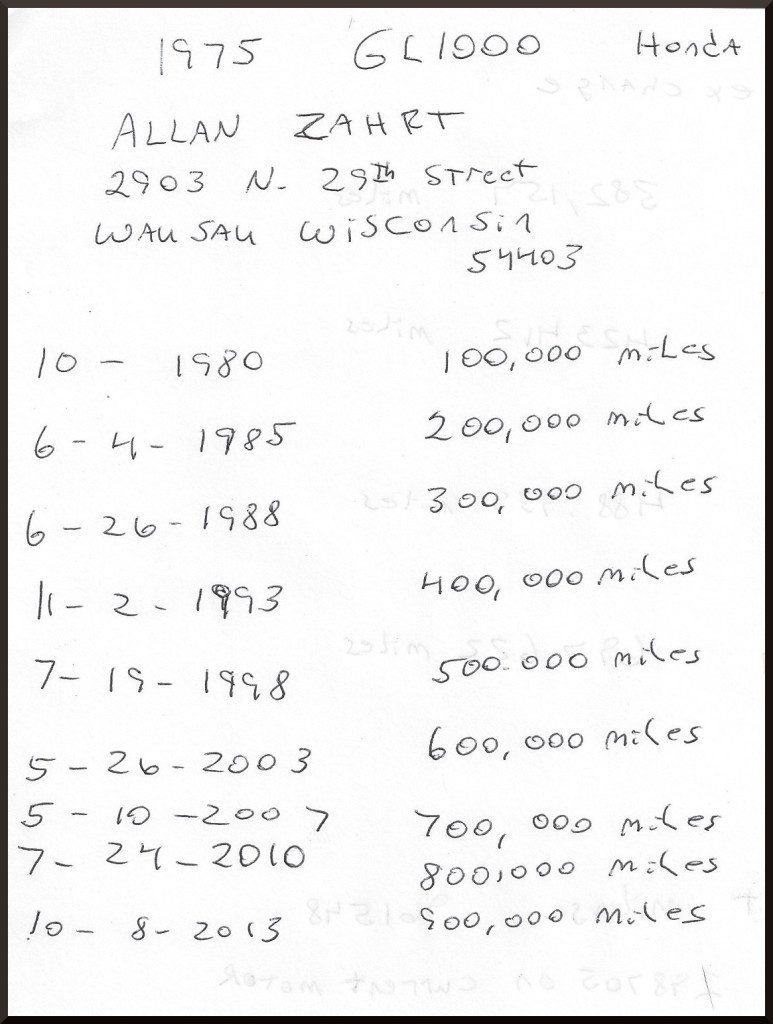 1975 GL1000 Honda
ALLAN ZAHRT
2903 N. 29th Street
WAUSAU WisConsin
54403
10 - 1980 100,000 miLes
6 - 4 - 1985 200,000 miles
6 - 26 - 1988 300,000 miles
11 - 2 - 1993 400,000 miles
7 - 19 - 1998 500.000 miles
5 - 26 - 2003 600,000 miles
5 - 10 - 2007 700,000 miles
7 - 24 - 2010 800,000 miles
10 - 8 - 2013 900,000 miles